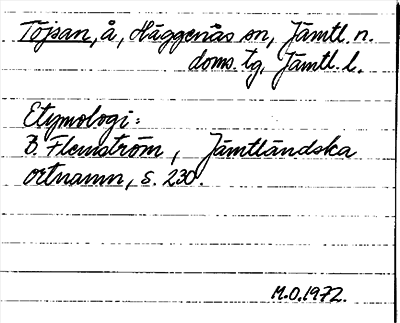 Töjsan, å, Häggenås sn, Jämtl. n.
doms. tg, Jämtl. l.
Etymologi:
B. Flemström, Jämtländska
ortnamn, s. 230.
M.O.1972.